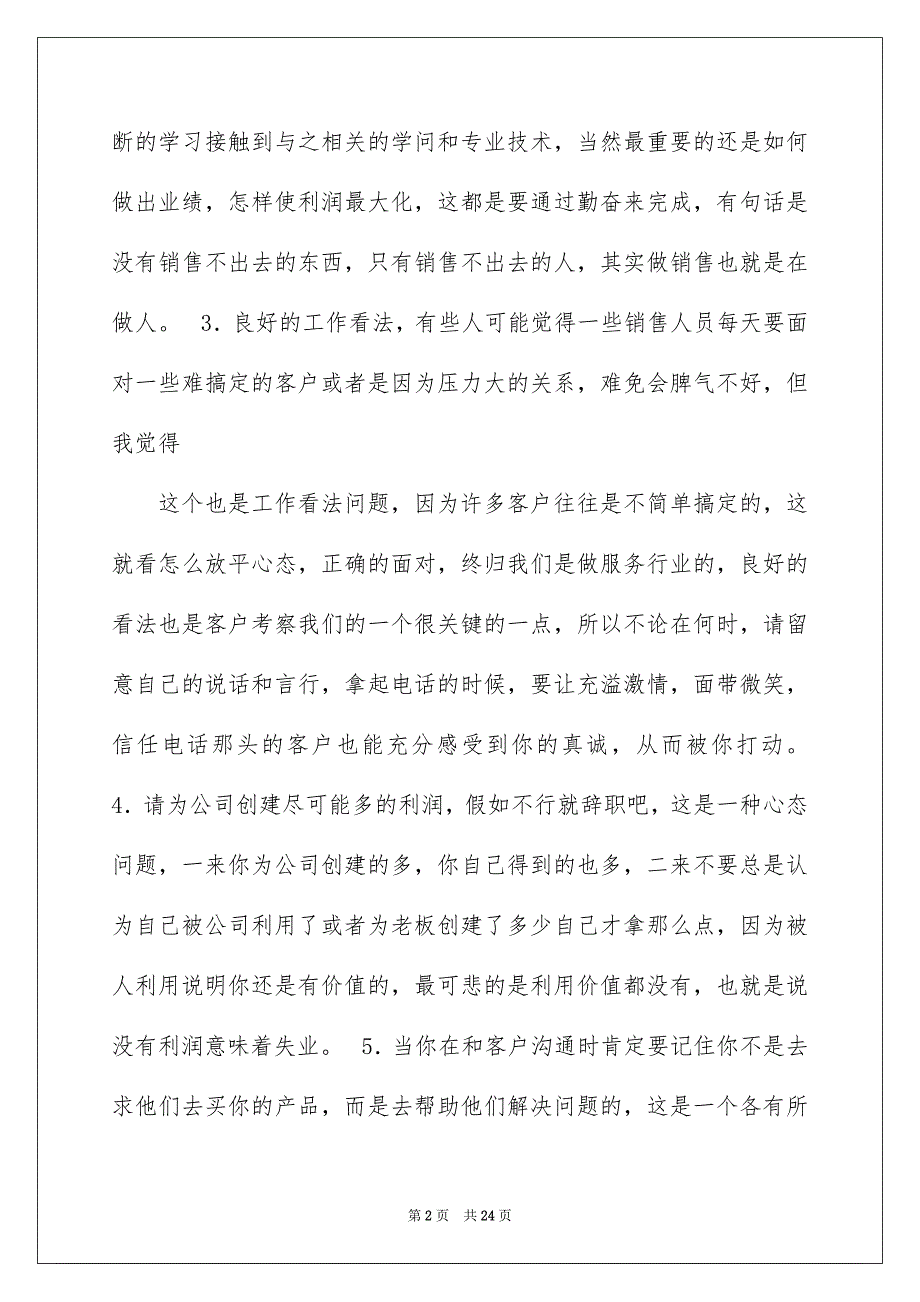 断的学习接触到与之相关的学问和专业技术，当然最重要的还是如何
做出业绩，怎样使利润最大化，这都是要通过勤奋来完成，有句话是
没有销售不出去的东西，只有销售不出去的人，其实做销售也就是在
做人。 3．良好的工作看法，有些人可能觉得一些销售人员每天要面
对一些难搞定的客户或者是因为压力大的关系，难免会脾气不好，但
我觉得
这个也是工作看法问题，因为许多客户往往是不简单搞定的，这
就看怎么放平心态，正确的面对，终归我们是做服务行业的，良好的
看法也是客户考察我们的一个很关键的一点，所以不论在何时，请留
意自己的说话和言行，拿起电话的时候，要让充溢激情，面带微笑，
信任电话那头的客户也能充分感受到你的真诚，从而被你打动。
4．请为公司创建尽可能多的利润，假如不行就辞职吧，这是一种心态
问题，一来你为公司创建的多，你自己得到的也多，二来不要总是认
为自己被公司利用了或者为老板创建了多少自己才拿那么点，因为被
人利用说明你还是有价值的，最可悲的是利用价值都没有，也就是说
没有利润意味着失业。 5．当你在和客户沟通时肯定要记住你不是去
求他们去买你的产品，而是去帮助他们解决问题的，这是一个各有所
第 2 页 共 24 页